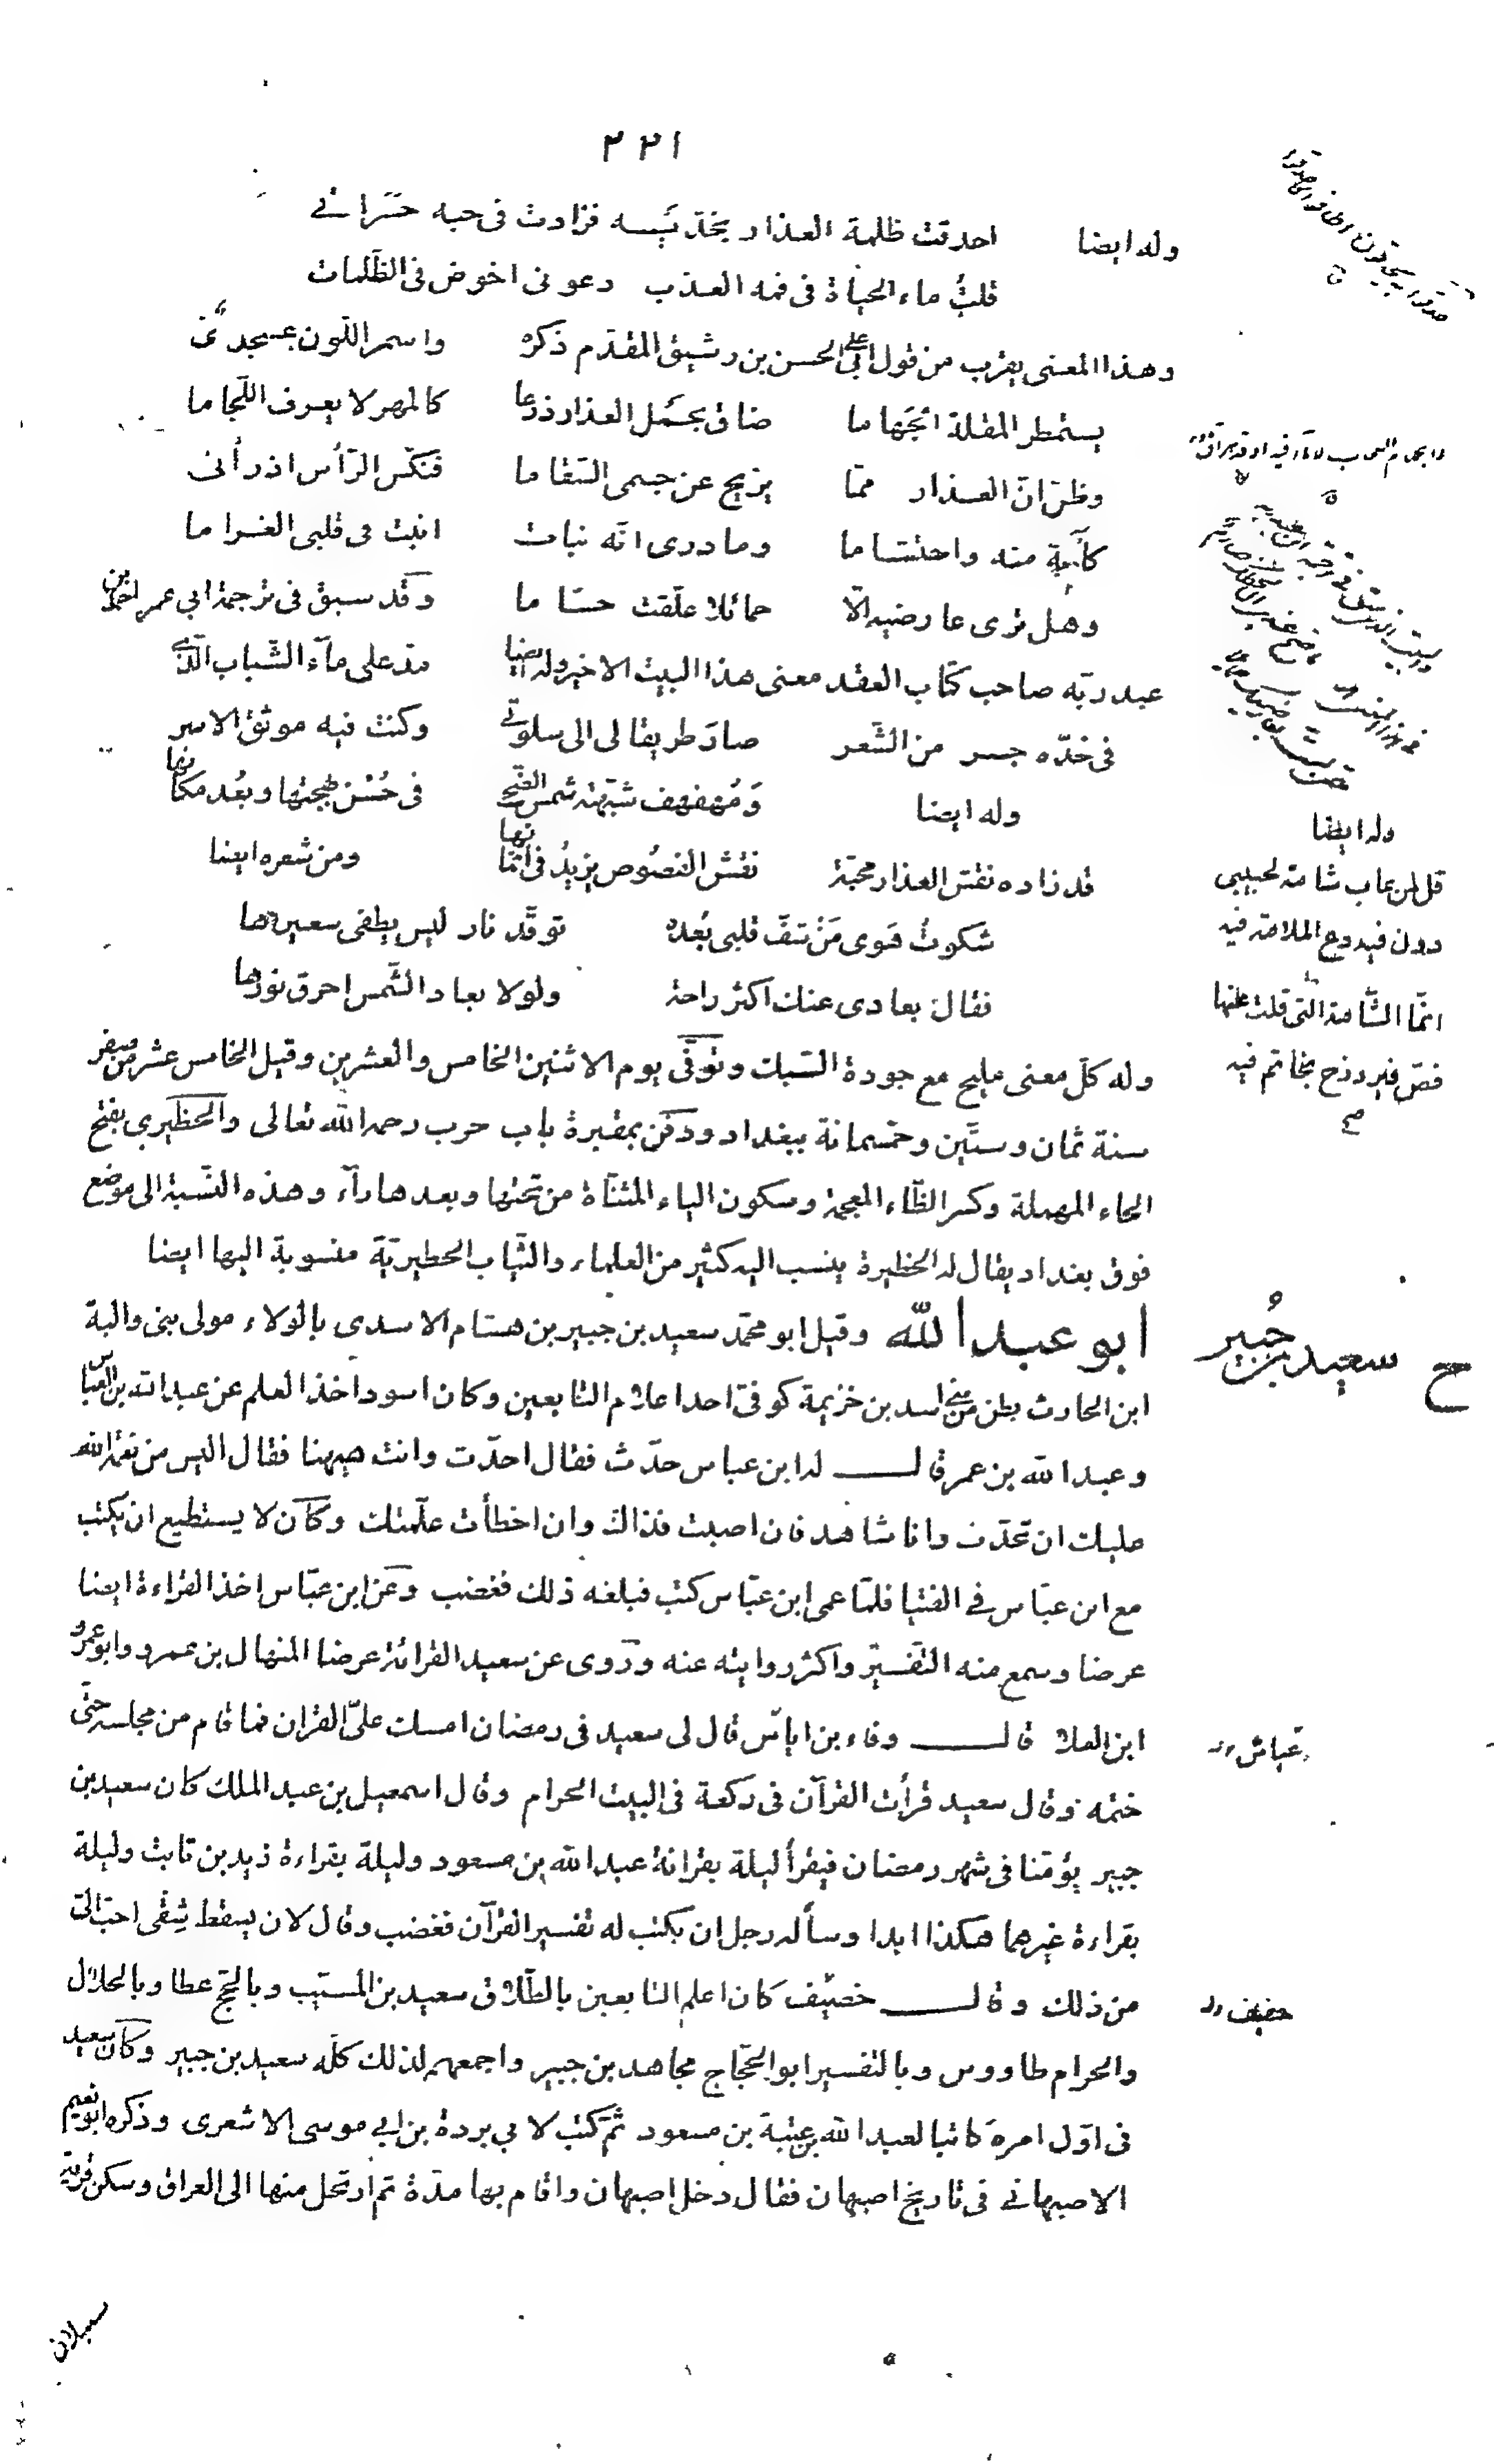 ٢٢١
وله ايضا احدقت ظلمة العذار بخدّيسه فزادت فى حبه حسراتى
قلتُ ماء الحياة فى فمه العذب دعونى اخوض فى الظّلمات
وهذا المعنى يقرب من قول ابى على الحسن بن رشيق المقدّم ذكره واسمر اللّون عسجدىّ
يستمطر المقلة الجهاما ضاق بحمل العذار ذرعا كالمهر لا يعرف اللّجاما
وظنّ انّ العذار ممّا يزيح عن جسمى السّقاما فنكّس الرّأس اذ رأنى
كآبة منه واحتشاما وما درى انّه نبات انبت فى قلبى الغراما
وهل ترى عارضيه الّا حمائلا علّقت حساما وقد سبق فى ترجمة ابي عمر احمد بن
عبد ربّه صاحب كتاب العقد معنى هذا البيت الاخير وله ايضا مدّ على مآء الشّباب الّذى
فى خدّه جسر من الشّعر صار طريقا لى الى سلوتى وكنت فيه موثق الاسر
وله ايضا وَمُهفهف شبّهته شمس الضّحى فى حُسْن بهجتها وبُعد مكانها
قد زاده نقش العذار محبّة نقش الفصُوص يزيدُ فى اثمانها ومن شعره ايضا
شكوتُ هَوى مَنْ شفّ قلبى بُعده توقّد نار ليس يطفى سعيرها
فقال بعادى عنك اكثر راحة ولولا بعاد الشّمس احرق نورها
وله كلّ معنى مليح مع جودة السّبك وتُوفّى يوم الاثنين الخامس والعشرين وقيل الخامس عشر من صفر
سنة ثمان وستّين وخمسمائة ببغداد ودفن بمقبرة باب حرب رحمه الله تعالى والحظيرى بفتح
الحاء المهملة وكسر الظّاء المعجمة وسكون الياء المثنّاة من تحتها وبعدها رآء وهذه النّسبة الى موضع
فوق بغداد يقال له الحظيرة ينسب اليه كثير من العلماء والثّياب الحظيريّة منسوبة اليها ايضا
ابو عبد الله وقيل ابو محمّد سعيد بن جبير بن هشام الاسدى بالولاء مولى بنى والبة
ابن الحارث بطن من بنى اسد بن خزيمة كوفىّ احد اعلام التابعين وكان اسود اخذ العلم عن عبد الله بن العبّاس
وعبد الله بن عمر قال له ابن عباس حدّث فقال احدّث وانت هيهنا فقال اليس من نعمة الله
عليك ان تحدّث وانا شاهد فان اصبت فذاك وان اخطأت علّمتك وكان لا يستطيع ان يكتب
مع ابن عبّاس فى الفتيا فلمّا عمى ابن عبّاس كتب فبلغه ذلك فغضب وعن ابن عبّاس اخذ القراءة ايضا
عرضا وسمع منه التّفسير واكثر روايته عنه وروى عن سعيد القرائة عرضا المنهال بن عمرو وابو عمرو
ابن العلا قال وفاء بن اياس قال لى سعيد فى رمضان امسك علىّ القران فما قام من مجلسه حتّى
ختمه وقال سعيد قرأت القرآن فى ركعة فى البيت الحرام وقال اسمعيل بن عبد الملك كان سعيد بن
جبير يؤمّنا فى شهر رمضان فيقرأ ليلة بقرائة عبد الله بن مسعود وليلة بقراءة زيد بن ثابت وليلة
بقراءة غيرهما هكذا ابدا وسأله رجل ان يكتب له تفسير القرآن فغضب وقال لان يسقط شقّى احبّ الىّ
من ذلك وقال خصيف كان اعلم التابعين بالطّلاق سعيد بن المسيّب وبالحجّ عطا وبالحلال
والحرام طاووس وبالتفسير ابو الحجّاج مجاهد بن جبير واجمعهم لذلك كلّه سعيد بن جبير وكان سعيد
فى اوّل امره كاتبا لعبد الله بن عتبة بن مسعود ثمّ كتب لابي بردة بن ابي موسى الاشعرى وذكره ابو نعيم
الاصبهانى فى تاريخ اصبهان فقال دخل اصبهان واقام بها مدّة ثم ارتحل منها الى العراق وسكن قرية
سنبلان
وله ايضا
قل لمن عاب شامة لحبيبى
دون فيه دع الملامة فيه
انّما الشّامة التى قلت عنها
فصّ فيروزج بخاتم فيه
صح
ح سعيد بن جُبير
عباس
خصيف